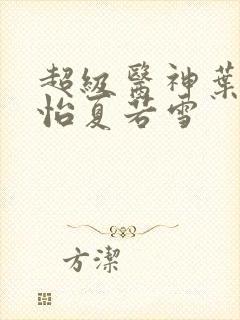 超級醫神葉
怡夏若雪
方潔